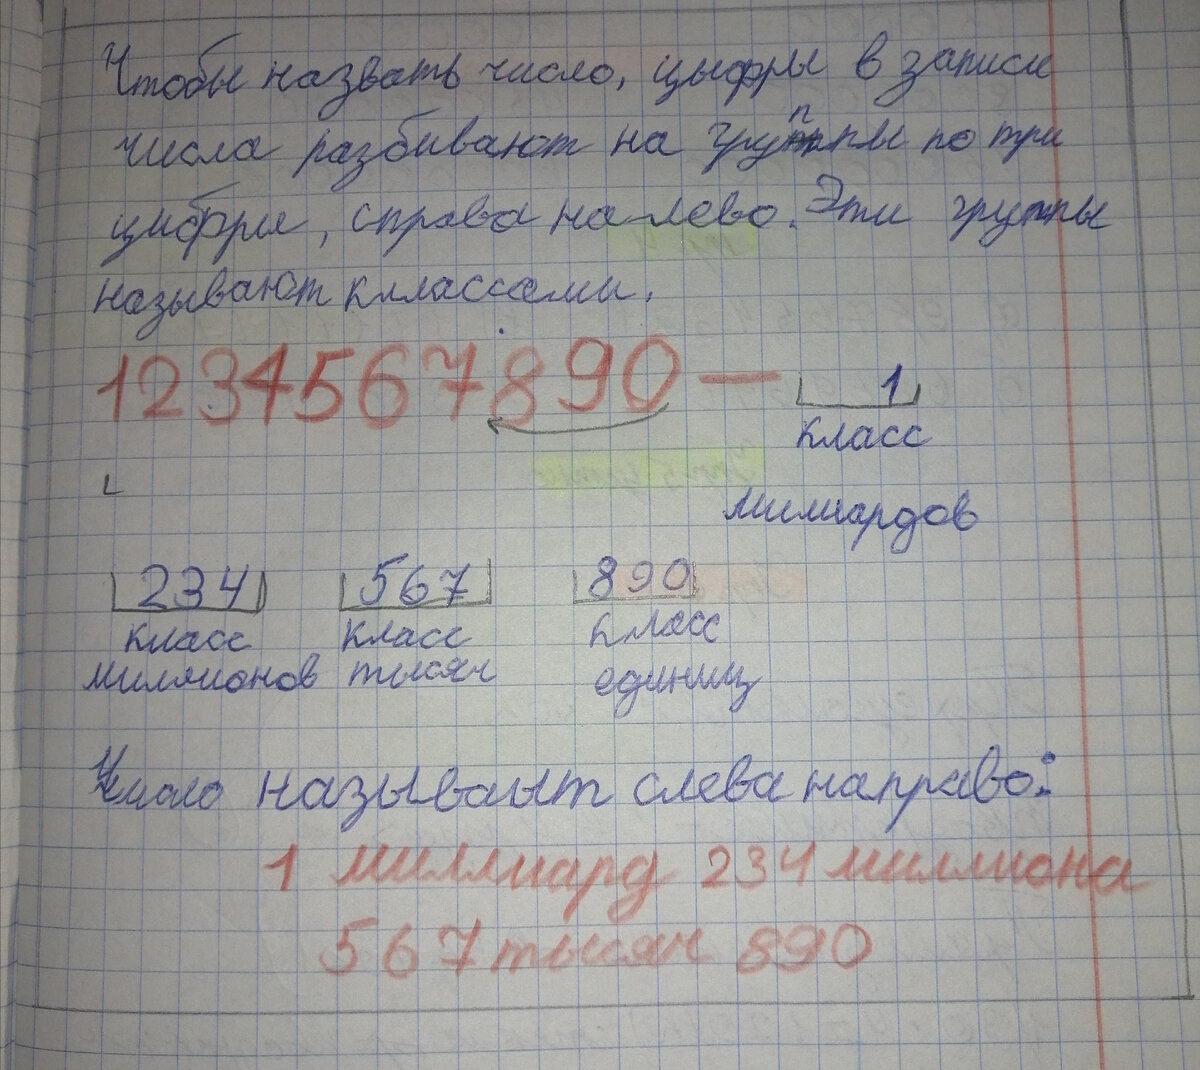 Чтобы назвать число, цыфры в записи
числа разбивают на группы по три
цифры, справа на лево. Эти группы
называют кллассами.
1234567890 — 1
класс
милиардов
234 567 890
класс класс класс
миллионов тысяч единиц
Число называыт слева направо:
1 миллиард 234 миллиона
567 тысяч 890